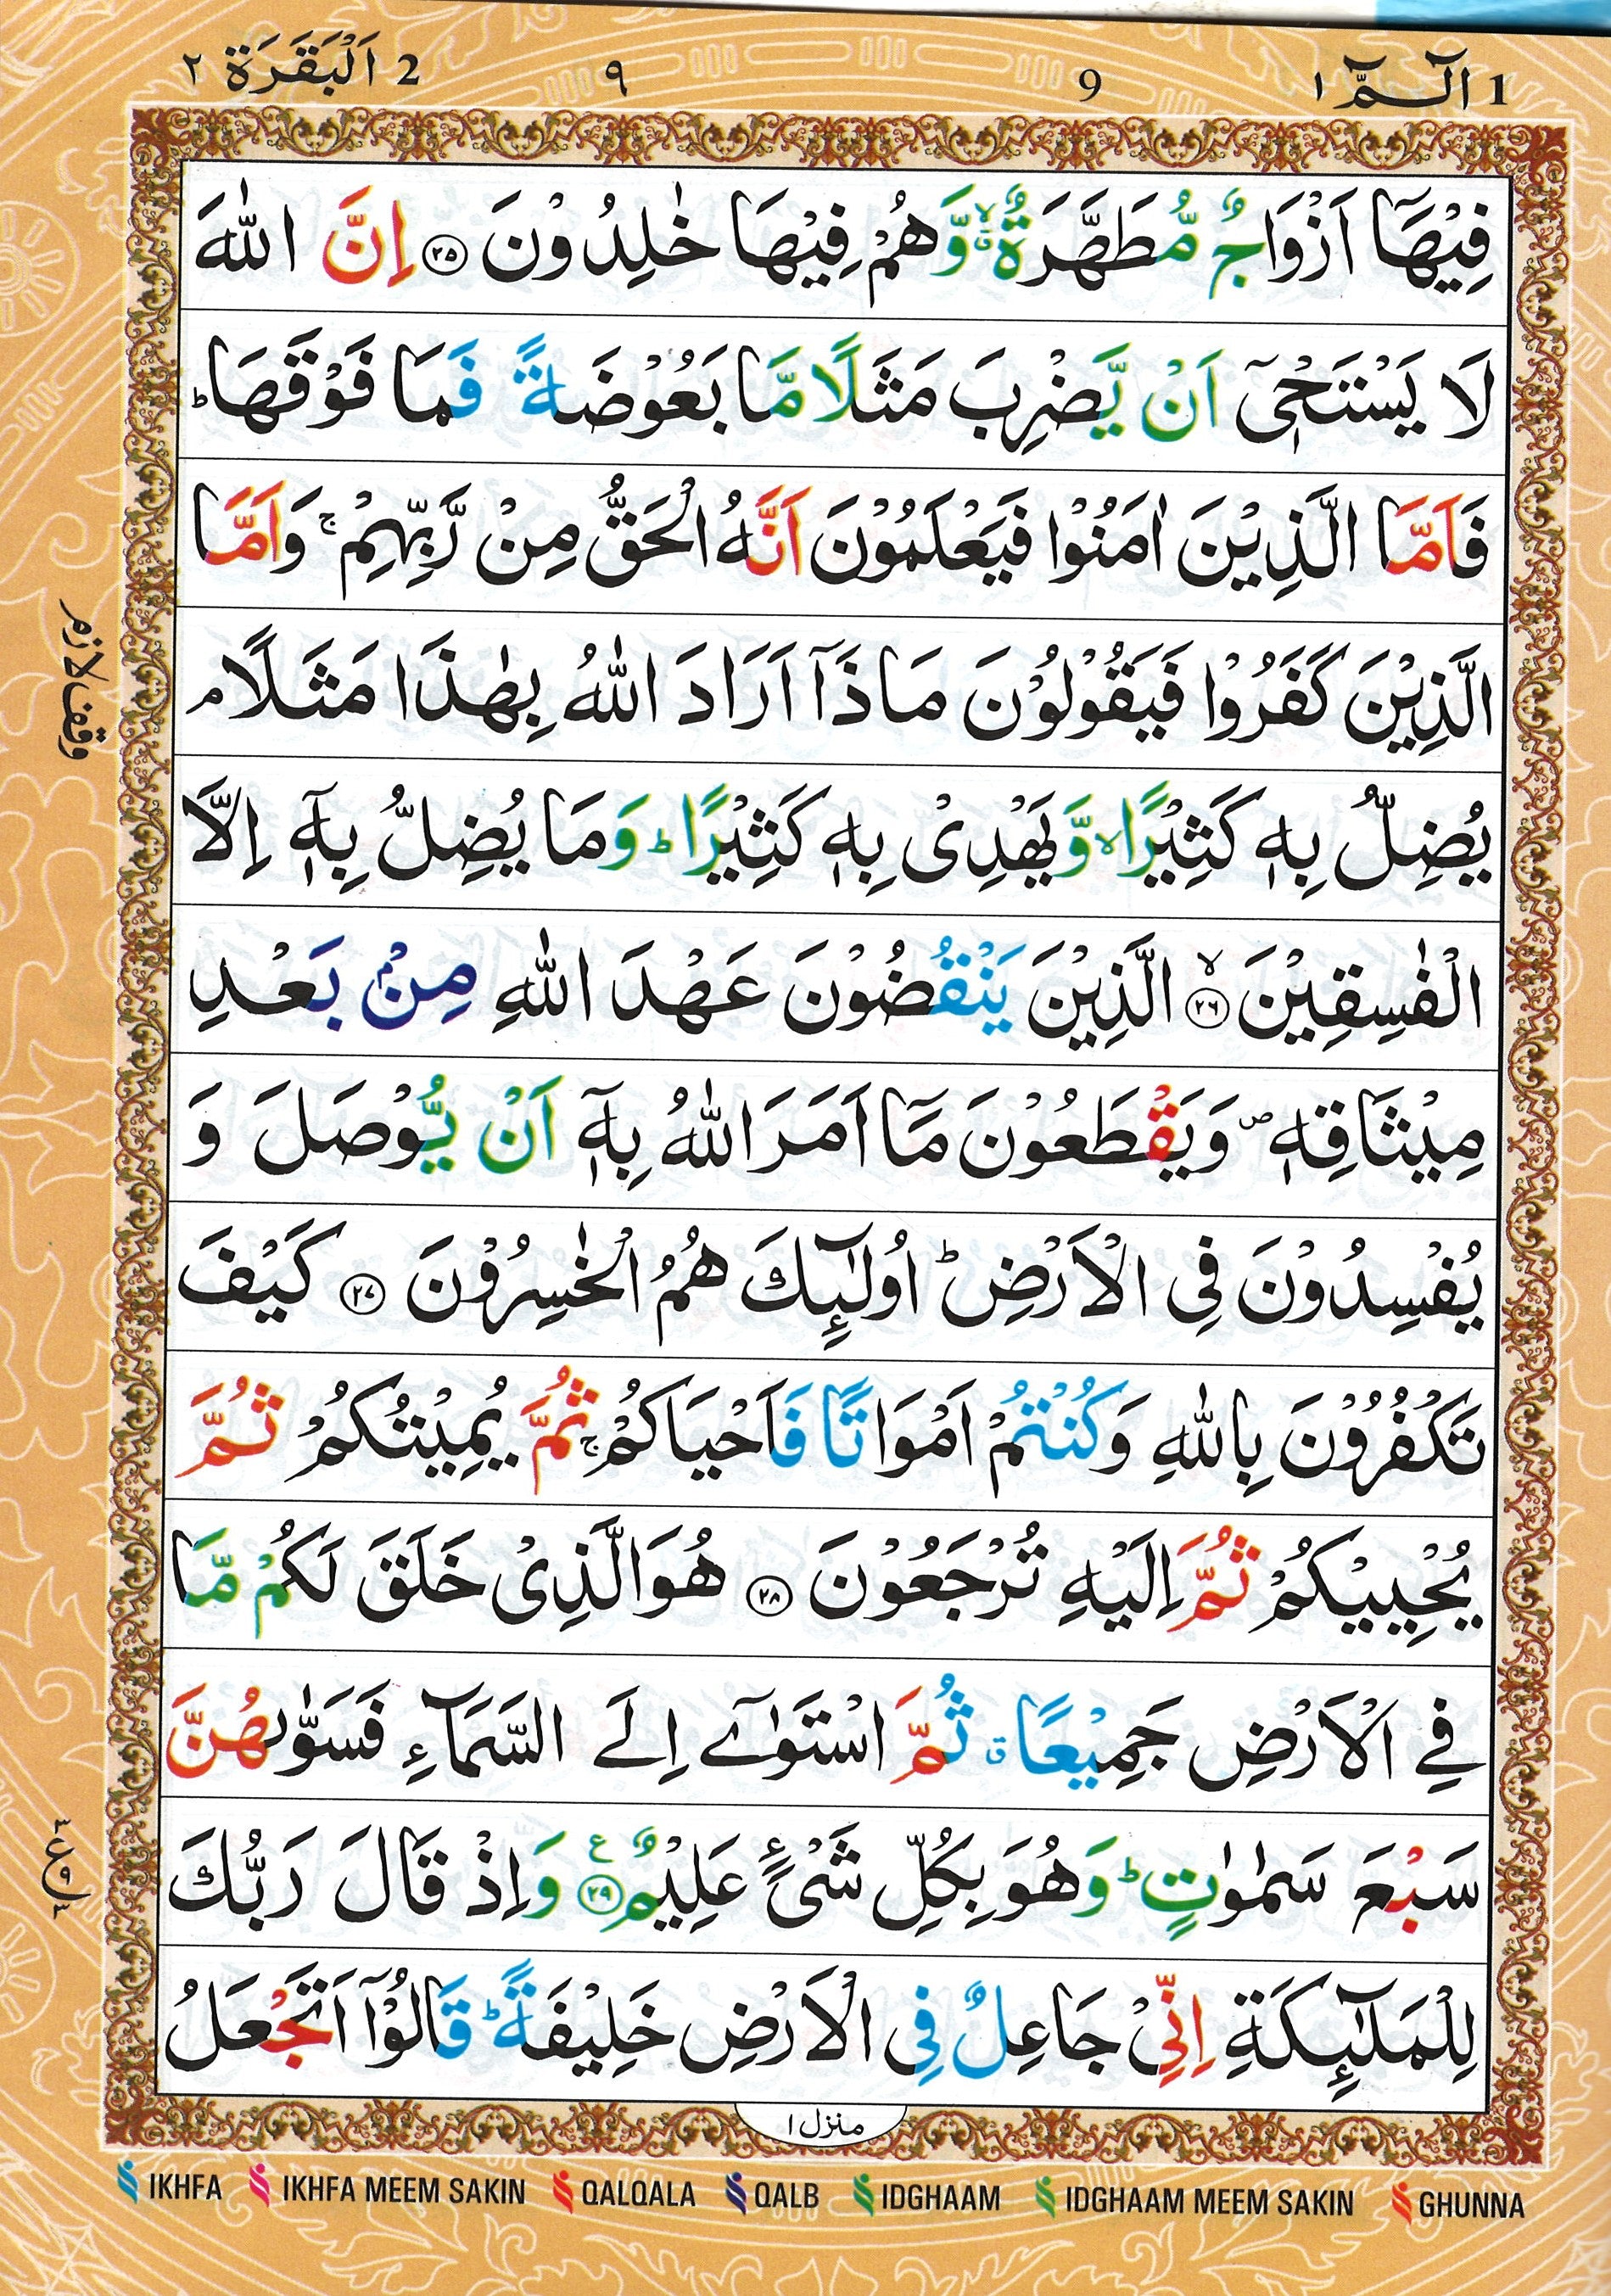 1 الٓـمّٓ ١ 9 ٩ 2 اَلْبَقَرَة ٢
فِيْهَاۤ اَزْوَاجٌ مُّطَهَّرَةٌ ۙۗ وَّهُمْ فِيْهَا خٰلِدُوْنَ ۝۲۵ اِنَّ اللّٰهَ
لَا يَسْتَحْيٖۤ اَنْ يَّضْرِبَ مَثَلًا مَّا بَعُوْضَةً فَمَا فَوْقَهَا ؕ
فَاَمَّا الَّذِيْنَ اٰمَنُوْا فَيَعْلَمُوْنَ اَنَّهُ الْحَقُّ مِنْ رَّبِّهِمْ ۚ وَاَمَّا
الَّذِيْنَ كَفَرُوْا فَيَقُوْلُوْنَ مَاذَاۤ اَرَادَ اللّٰهُ بِهٰذَا مَثَلًا ۘ
وقف لازم
يُضِلُّ بِهٖ كَثِيْرًا ۙ وَّيَهْدِىْ بِهٖ كَثِيْرًا ؕ وَمَا يُضِلُّ بِهٖۤ اِلَّا
الْفٰسِقِيْنَ ۙ ۝۲۶ الَّذِيْنَ يَنْقُضُوْنَ عَهْدَ اللّٰهِ مِنْۢ بَعْدِ
مِيْثَاقِهٖ ۪ وَيَقْطَعُوْنَ مَاۤ اَمَرَ اللّٰهُ بِهٖۤ اَنْ يُّوْصَلَ وَ
يُفْسِدُوْنَ فِى الْاَرْضِ ؕ اُولٰٓئِكَ هُمُ الْخٰسِرُوْنَ ۝۲۷ كَيْفَ
تَكْفُرُوْنَ بِاللّٰهِ وَكُنْتُمْ اَمْوَاتًا فَاَحْيَاكُمْ ۚ ثُمَّ يُمِيْتُكُمْ ثُمَّ
يُحْيِيْكُمْ ثُمَّ اِلَيْهِ تُرْجَعُوْنَ ۝۲۸ هُوَ الَّذِىْ خَلَقَ لَكُمْ مَّا
فِے الْاَرْضِ جَمِيْعًا ۗ ثُمَّ اسْتَوٰٓے اِلَے السَّمَآءِ فَسَوّٰىهُنَّ
سَبْعَ سَمٰوٰتٍ ؕ وَهُوَ بِكُلِّ شَىْءٍ عَلِيْمٌ ۝۲۹ ع وَاِذْ قَالَ رَبُّكَ
لِلْمَلٰٓئِكَةِ اِنِّىْ جَاعِلٌ فِى الْاَرْضِ خَلِيْفَةً ؕ قَالُوْۤا اَتَجْعَلُ
منزل ١
IKHFA IKHFA MEEM SAKIN QALQALA QALB IDGHAAM IDGHAAM MEEM SAKIN GHUNNA